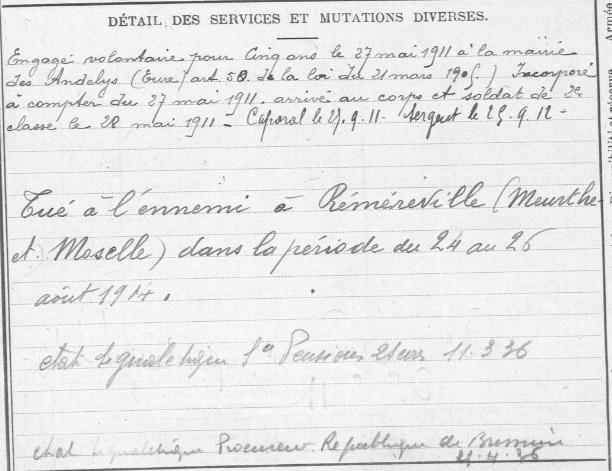 DÉTAIL DES SERVICES ET MUTATIONS DIVERSES.
Engagé volontaire pour Cinq ans le 27 mai 1911 à la mairie
des Andelys (Eure) art. 50 de la loi du 21 mars 1905.) Incorporé
à compter du 27 mai 1911. arrivé au corps et soldat de 2e
classe le 28 mai 1911 - Caporal le 27.9.11 - Sergent le 25.9.12 -
Tué à l'ennemi à Réméréville (Meurthe-
et Moselle) dans la période du 24 au 26
août 1914.
etat signalétique Pensions 11.3.36
etat signalétique Procureur République de